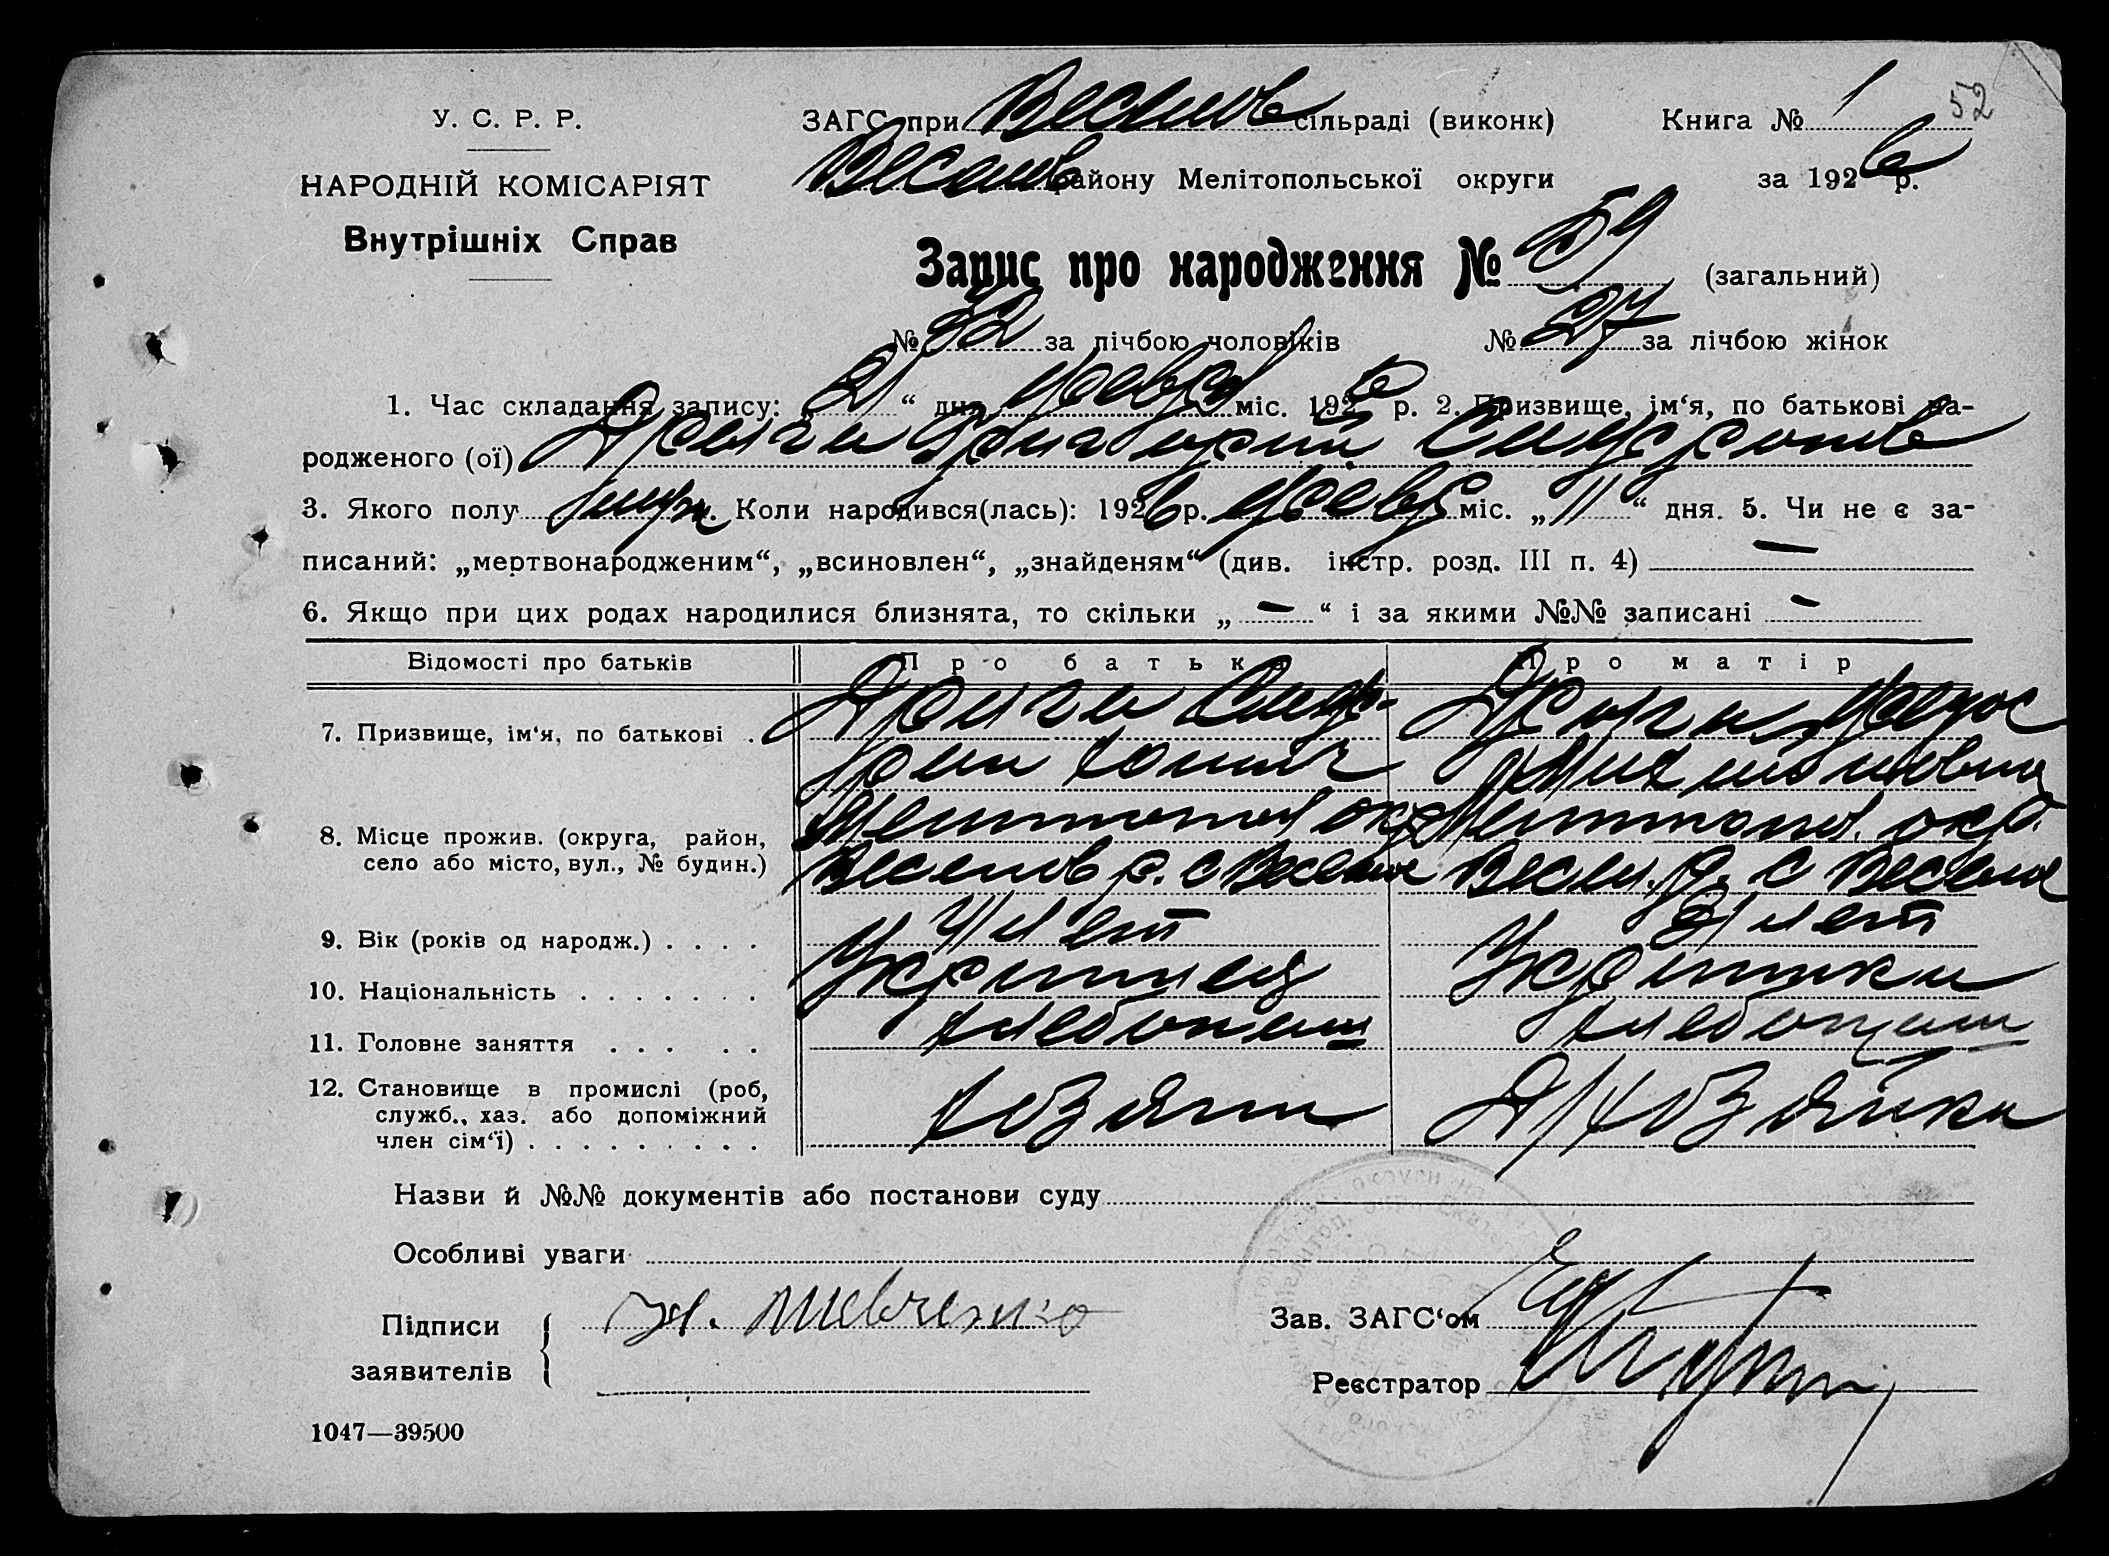 52
У. С. Р. Р.
НАРОДНІЙ КОМІСАРІЯТ
Внутрішніх Справ
ЗАГС при Веселов сільраді (виконк)
Книга № 1
Веселов району Мелітопольської округи
за 1926 р.
Запис про народження № 59 (загальний)
№ 32 за лічбою чоловіків № 27 за лічбою жінок
1. Час складання запису: „21“ дня февр міс. 1926 р. 2. Призвище, ім‘я, по батькові на-
родженого (ої) Григорий
3. Якого полу муж. Коли народився(лась): 1926 р. февр міс. „11“ дня. 5. Чи не є за-
писаний: „мертвонародженим“, „всиновлен“, „знайденям“ (див. інстр. розд. III п. 4) —
6. Якщо при цих родах народилися близнята, то скільки „—“ і за якими №№ записані —
Відомості про батьків Про батька Про матір
7. Призвище, ім‘я, по батькові .
8. Місце прожив. (округа, район,
село або місто, вул., № будин.)
Мелитопол окр Мелитопол. окр.
Веселов р. с Веселое Весел. р. с Веселое
9. Вік (років од народж.) . . . . лет лет
10. Національність . . . . . . . Украинец Украинка
11. Головне заняття . . . . . хлебопаш хлебопаш
12. Становище в промислі (роб,
служб., хаз. або допоміжний
член сім‘ї) . . . . . . . . . хозяин хозяйка
Назви й №№ документів або постанови суду
Особливі уваги
Підписи
заявителів
Шевченко
Зав. ЗАГС‘ом
Реєстратор
1047—39500